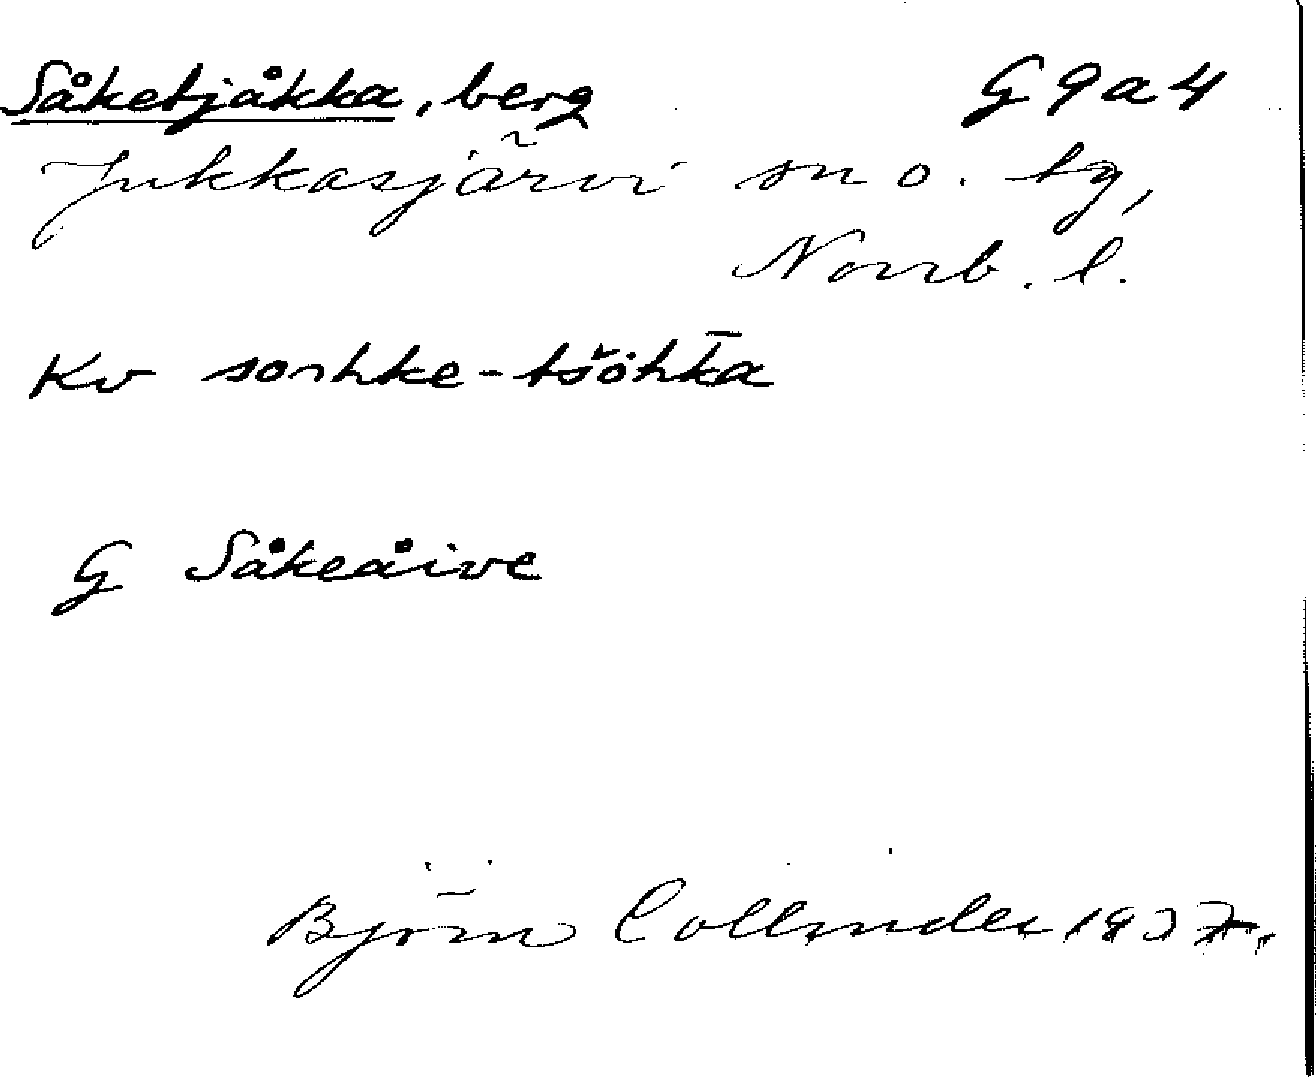 Såketjåkka, berg G 9 a 4
Jukkasjärvi sn o. tg,
Norrb. l.
Kv sorhke-tšŏhk̄a
G Såkeåive
Björn Collinder 1937.